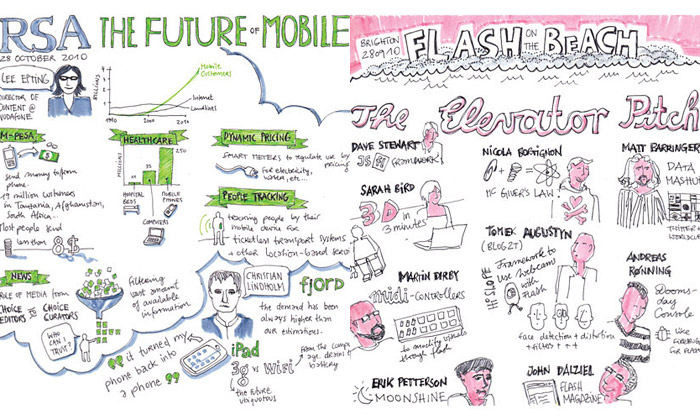 RSA THE FUTURE OF MOBILE
28 OCTOBER 2010
LEE EPTING
DIRECTOR OF
CONTENT @
VODAFONE
MILLIONS
Mobile
Customers
Internet
Landlines
1990
2000
M-PESA
Send money to/from
phone.
19 million customers
in Tanzania, Afghanistan,
South Africa...
Most people send
less than 8$
HEALTHCARE
MILLIONS
250
HOSPITAL
BEDS
COMPUTERS
MOBILE
PHONES
DYNAMIC PRICING
SMART METERS to regulate use by
pricing
for electricity,
water, etc...
PEOPLE TRACKING
tracking people by their
mobile device for
ticketless transport systems
+ other location-based
NEWS
ROLE OF MEDIA from
CHOICE EDITORS TO CHOICE CURATORS
WHO
CAN I
TRUST?
Filtering
vast amount
of available
information
CHRISTIAN
LINDHOLM
fjord
the demand has been
always highest than
our estimations.
"it turned my
phone back into
a phone"
iPad
3g vs wifi
the future
ubiquitous
BRIGHTON
280910
FLASH ON THE BEACH
The Elevator Pitch
DAVE STEWART
SARAH BIRD
3D in
3 minutes
MARTIN BIRBY
midi-CONTROLLERS
to amplify visuals
through flash
ERIK PETTERSON
MOONSHINE
NICOLA BORTIGNON
MC GIVER'S LAW
TOMEK AUGUSTYN
(BLOG2T)
Framework to
use webcam
with
Flash
face detection + distortion
+ filters + + +
JOHN DALZIEL
FLASH
MAGAZINE
MATT BARRINGER
DATA
MASHUP
TWITTER +
ANDREAS
RØNNING
Dooms-
day
Console
Like